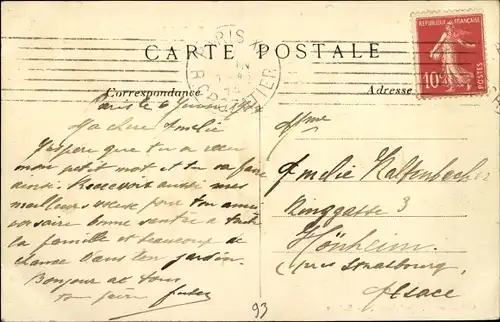 CARTE POSTALE
PARIS
REPUBLIQUE FRANÇAISE
10c
POSTES
Correspondance
Adresse
Paris le 6
Ma chère Amélie
J'espère que tu a
mon petit mot et tu va faire
ainsi. Recevoir aussi mes
meilleur pour ton anni
versaire bonne santée a toute
la famille et beaucoup de
chance dans ton jardin.
Bonjour a tous
ton frère
Mme
Amelie Kaltenbacher
Ringgasse 3
Hönheim
(près Strasbourg)
Alsace
93